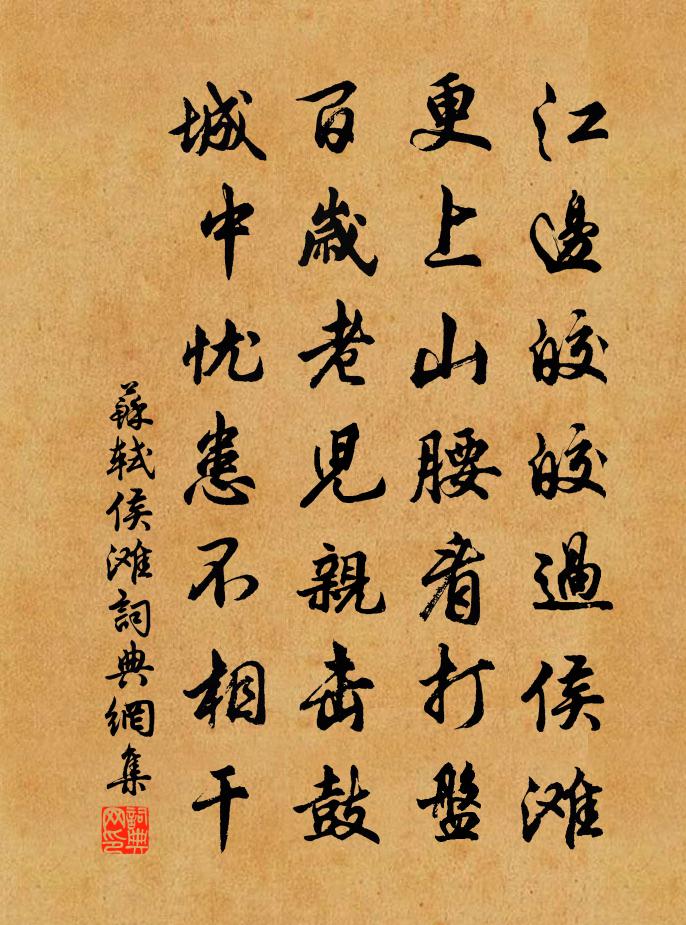 江邊皎皎過侯滩
更上山腰看打盤
百歲老兒親击鼓
城中忧患不相干
蘇轼侯滩詞典網集
詞典网印